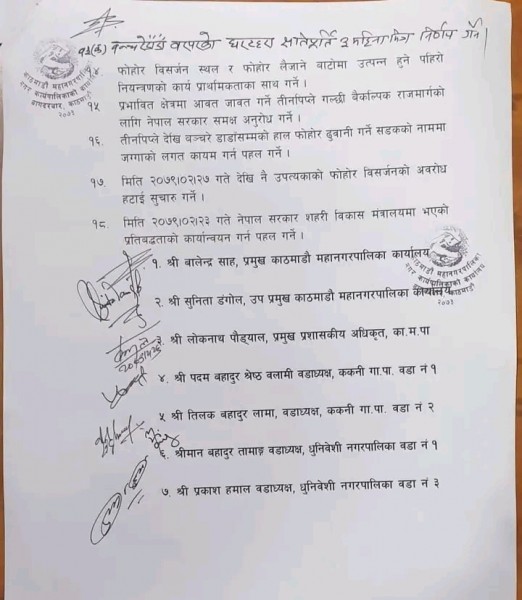 १३(क) बञ्चरेडाँडा वरपरको घरटहरा क्षतिपूर्ति ३ महिना भित्र निर्णय गर्ने ।
१४ फोहोर विसर्जन स्थल र फोहोर लैजाने बाटोमा उत्पन्न हुने पहिरो
नियन्त्रणको कार्य प्राथमिकताका साथ गर्ने ।
१५ प्रभावित क्षेत्रमा आवत जावत गर्ने तीनपिप्ले गल्छी बैकल्पिक राजमार्गको
लागि नेपाल सरकार समक्ष अनुरोध गर्ने ।
१६. तीनपिप्ले देखि बञ्चरे डाडाँसम्मको हाल फोहोर ढुवानी गर्ने सडकको नाममा
जग्गाको लगत कायम गर्न पहल गर्ने ।
१७. मिति २०७९।०२।२७ गते देखि नै उपत्यकाको फोहोर विसर्जनको अवरोध
हटाई सुचारु गर्ने ।
१८. मिति २०७९।०२।२३ गते नेपाल सरकार शहरी विकास मंत्रालयमा भएको
प्रतिबद्धताको कार्यान्वयन गर्न पहल गर्ने ।
१. श्री बालेन्द्र साह, प्रमुख काठमाडौ महानगरपालिका कार्यालय
२. श्री सुनिता डंगोल, उप प्रमुख काठमाडौ महानगरपालिका कार्यालय
३. श्री लोकनाथ पौड्याल, प्रमुख प्रशासकीय अधिकृत, का.म.पा
४. श्री पदम बहादुर श्रेष्ठ वलामी वडाध्यक्ष, ककनी गा.पा. वडा नं १
५ श्री तिलक बहादुर लामा, वडाध्यक्ष, ककनी गा.पा. वडा नं २
६. श्रीमान बहादुर तामाङ्ग वडाध्यक्ष, धुनिवेशी नगरपालिका वडा नं १
७. श्री प्रकाश हमाल वडाध्यक्ष, धुनिवेशी नगरपालिका वडा नं ३
काठमाडौं महानगरपालिका
नगर कार्यपालिकाको कार्यालय
बागदरबार, काठमाडौं
२०७३
काठमाडौं महानगरपालिका
नगर कार्यपालिकाको कार्यालय
काठमाडौं
२०७३